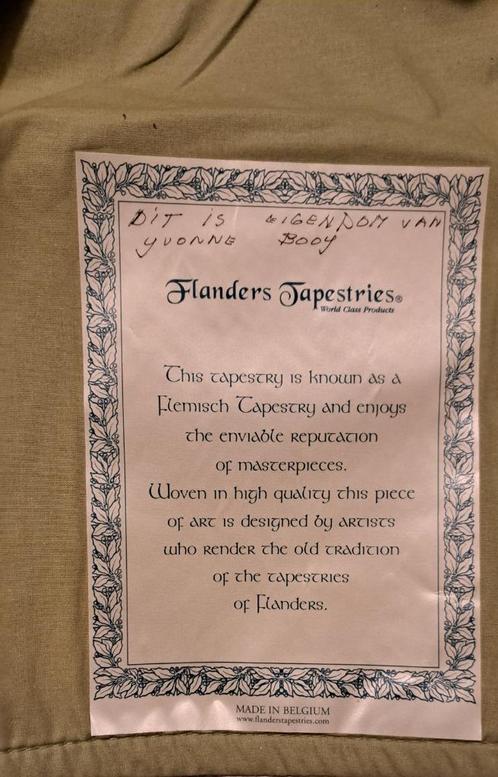 DIT IS EIGENDOM VAN
YVONNE BOOY
Flanders Tapestries®
World Class Products
This tapestry is known as a
Flemisch Tapestry and enjoys
the enviable reputation
of masterpieces.
Woven in high quality this piece
of art is designed by artists
who render the old tradition
of the tapestries
of Flanders.
MADE IN BELGIUM
www.flanderstapestries.com